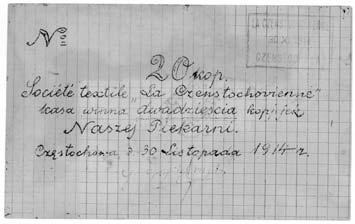 No
20 kop.
Société textile "La Czenstochovienne"
kasa winna dwadzieścia kopijek
Naszej Piekarni.
Częstochowa d. 30 Listopada 1914 r.